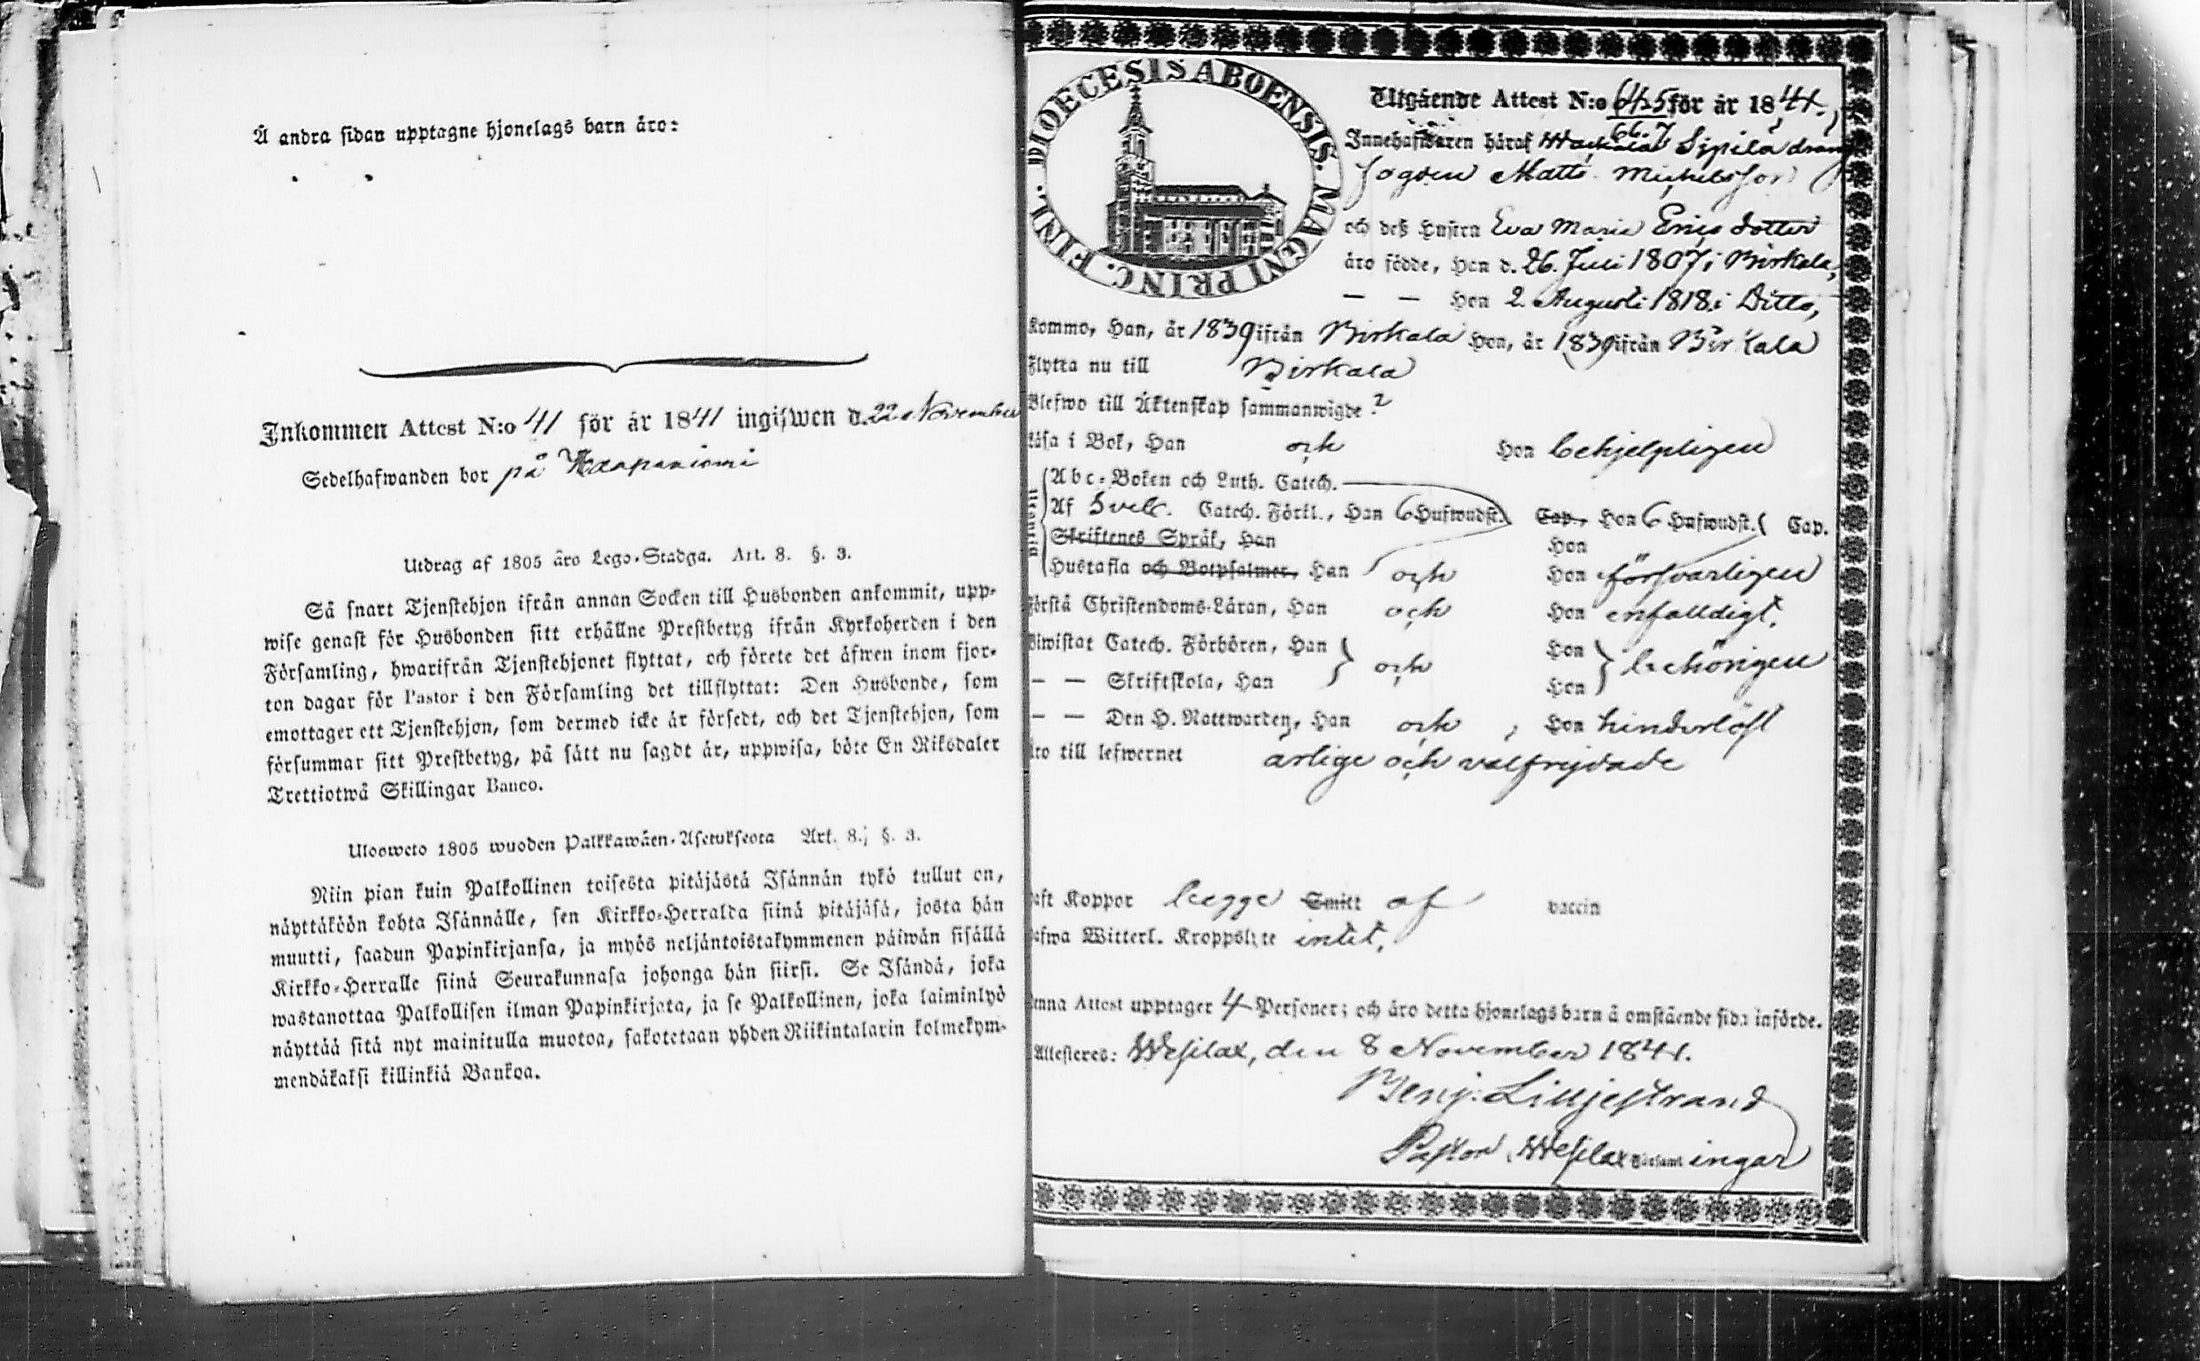 Å andra sidan upptagne hjonelags barn äro:
Inkommen Attest N:o 41 för år 1841 ingifwen d. 22 November
Sedelhafwanden bor på Haapaniemi
Utdrag af 1805 års Lego-Stadga. Art. 8. §. 3.
Så snart Tjenstehjon ifrån annan Socken till Husbonden ankommit, upp-
wise genast för Husbonden sitt erhållne Prestbetyg ifrån Kyrkoherden i den
Församling, hwarifrån Tjenstehjonet flyttat, och förete det äfwen inom fjor-
ton dagar för Pastor i den Församling det tillflyttat: Den Husbonde, som
emottager ett Tjenstehjon, som dermed icke är försedt, och det Tjenstehjon, som
försummar sitt Prestbetyg, på sätt nu sagdt är, uppwisa, böte En Riksdaler
Trettiotwå Skillingar Banco.
Ulosweto 1805 wuoden Palkkawäen-Asetuksesta Art. 8. §. 3.
Niin pian kuin Palkollinen toisesta pitäjästä Isännän tykö tullut on,
näyttäköön kohta Isännälle, sen Kirkko-Herralda siinä pitäjäsä, josta hän
muutti, saadun Papinkirjansa, ja myös neljäntoistakymmenen päiwän sisällä
Kirkko-Herralle siinä Seurakunnasa johonga hän siirsi. Se Isändä, joka
wastanottaa Palkollisen ilman Papinkirjata, ja se Palkollinen, joka laiminlyö
näyttää sitä nyt mainitulla muotoa, sakotetaan yhden Riikintalarin kolmekym-
mendäkaksi killinkiä Bankoa.
DIOECESIS ABOENSIS. MAGNI PRINC. FINL.
Utgående Attest N:o 645 för år 1841.
66.7
Innehafwaren häraf Sipilä dräng
Matts Michelsson
och deß Hustru Eva Maria Erics dotter
äro födde, Han d. 26. Juli 1807 i Birkala,
— — Hon 2 Augusti 1818 i Ditto,
Kommo, Han, år 1839 ifrån Birkala Hon, år 1839 ifrån Birkala
Flytta nu till Birkala
Blefwo till Äktenskap sammanwigde ?
Läsa i Bok, Han och Hon behjelpligen
Abc-Boken och Luth. Catech.
Af Sveb. Catech. Förkl., Han 6 Hufwudst. Cap., Hon 6 Hufwudst. Cap.
Skriftenes Språk, Han Hon
Hustafla och Botpsalmer, Han och Hon försvarligen
Förstå Christendoms-Läran, Han och Hon enfalldigt.
Biwistat Catech. Förhören, Han och Hon behörigen
— — Skriftskola, Han Hon
— — Den H. Nattwarden, Han och, Hon hinderlöst
äro till lefwernet ärlige och välfrejdade
Koppor begge Smitt af vaccin
Witterl. Kroppslyte intet.
Attest upptager 4 Personer; och äro detta hjonelags barn å omstående sida införde.
Attesteres: Wesilax, den 8 November 1841.
Benj. Liljestrand
Pastor i Wesilax Församlingar